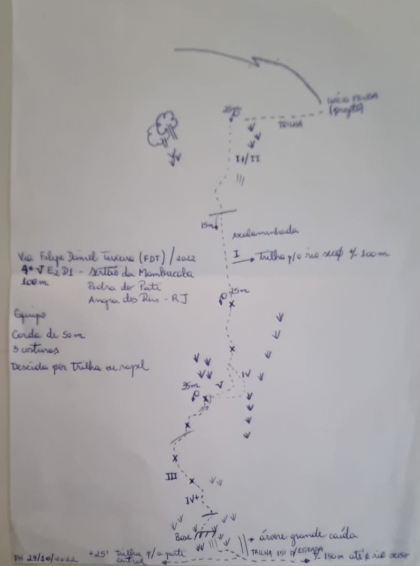 INÍCIO FENDA
(projeto)
25m
TRILHA
I+/II
15m
escalaminhada
I → Trilha p/o rio seco % 100m
Via Felipe Daniel Teixeira (FDT) / 2022
4º V E2 D1 - Sertão da Mambucaba
100m
Pedra do Prati
Angra dos Reis - RJ
Equipo
Corda de 50m
5 costuras
Descida por trilha ou rapel
25m
IV
V
35m
III
IV+
Base
árvore grande caída
TRILHA
% 150m até o rio seco
+25' Trilha p/a parte
29/10/2022